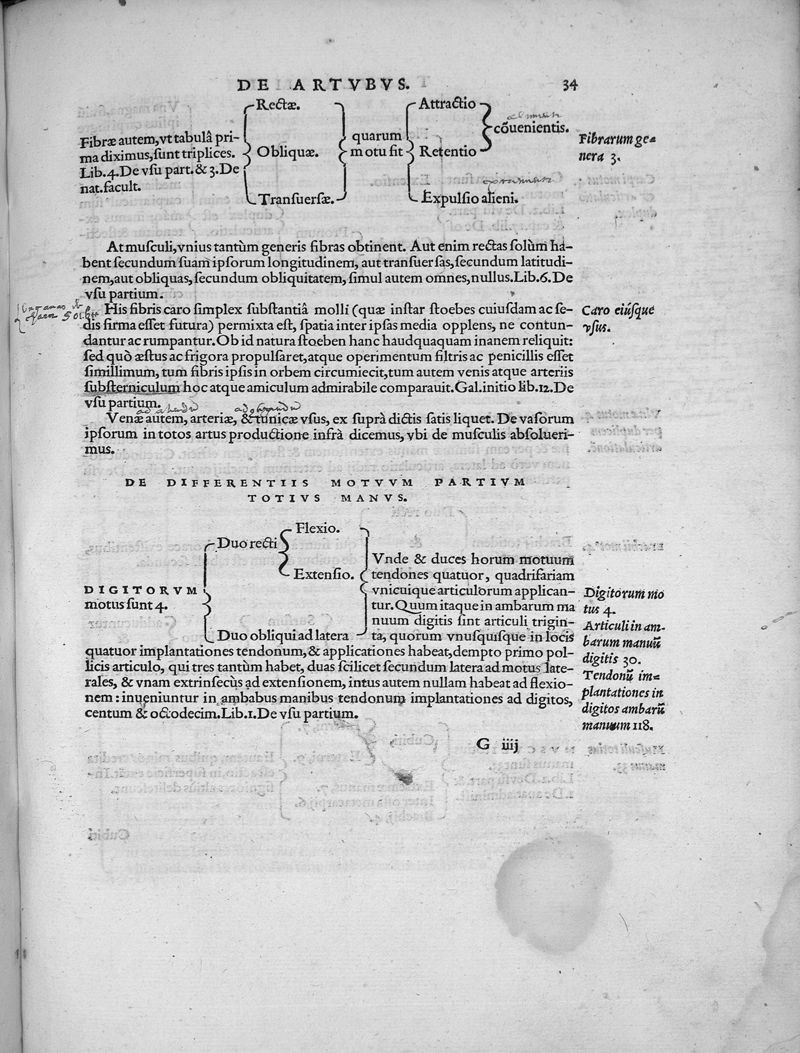 DE ARTVBVS. 34
Fibræ autem, vt tabulâ pri-
ma diximus, sunt triplices.
Lib.4. De vsu part. & 3. De
nat. facult.
Rectæ.
Obliquæ.
Transuersæ.
quarum
motu fit
Attractio
Retentio
cõuenientis.
Expulsio alieni.
Fibrarum ge=
nera 3.
At musculi, vnius tantùm generis fibras obtinent. Aut enim rectas solùm ha-
bent secundum suam ipsorum longitudinem, aut transuersas, secundum latitudi-
nem, aut obliquas, secundum obliquitatem, simul autem omnes, nullus. Lib.6. De
vsu partium.
His fibris caro simplex substantiâ molli (quæ instar stoebes cuiusdam ac se-
dis firma esset futura) permixta est, spatia inter ipsas media opplens, ne contun-
dantur ac rumpantur. Ob id natura stoeben hanc haudquaquam inanem reliquit:
sed quò æstus ac frigora propulsaret, atque operimentum filtris ac penicillis esset
simillimum, tum fibris ipsis in orbem circumiecit, tum autem venis atque arteriis
substerniculum hoc atque amiculum admirabile comparauit. Gal. initio lib.12. De
vsu partium.
Caro eiúsque
vsus.
Venæ autem, arteriæ, & tunicæ vsus, ex suprà dictis satis liquet. De vasorum
ipsorum in totos artus productione infrà dicemus, vbi de musculis absolueri-
mus.
DE DIFFERENTIIS MOTVVM PARTIVM
TOTIVS MANVS.
DIGITORVM
motus sunt 4.
Duo recti
Flexio.
Extensio.
Duo obliqui ad latera
Vnde & duces horum motuum
tendones quatuor, quadrifariam
vnicuique articulorum applican-
tur. Quum itaque in ambarum ma
nuum digitis sint articuli trigin-
ta, quorum vnusquisque in locis
quatuor implantationes tendonum, & applicationes habeat, dempto primo pol-
licis articulo, qui tres tantùm habet, duas scilicet secundum latera ad motus late-
rales, & vnam extrinsecùs ad extensionem, intus autem nullam habeat ad flexio-
nem: inueniuntur in ambabus manibus tendonum implantationes ad digitos,
centum & octodecim. Lib.1. De vsu partium.
Digitorum mo
tus 4.
Articuli in am-
barum manuũ
digitis 30.
Tendonũ im=
plantationes in
digitos ambarũ
manuum 118.
G iiij